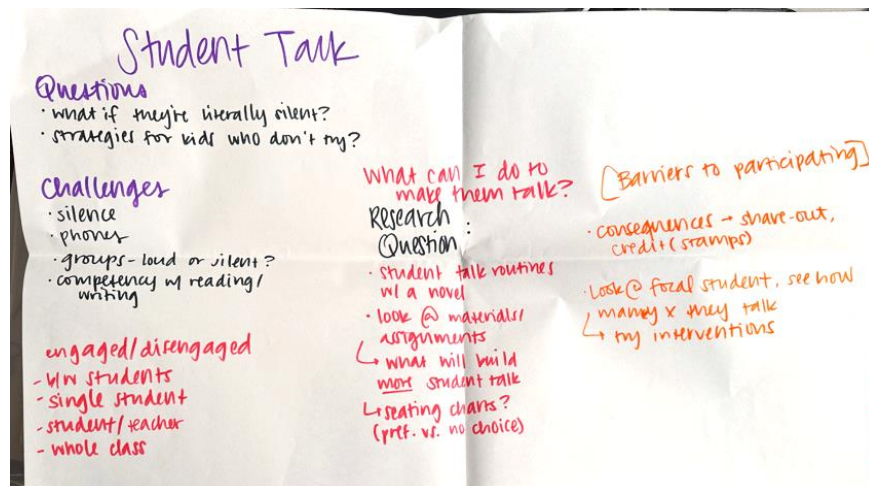 Student Talk
Questions
· what if they're literally silent?
· strategies for kids who don't try?
Challenges
· silence
· phones
· groups - loud or silent?
· competency w/ reading/
writing
engaged/disengaged
- b/w students
- single student
- student/teacher
- whole class
What can I do to
make them talk?
Research :
Question
· student talk routines
w/ a novel
· look @ materials/
assignments
↳ what will build
more student talk
↳ seating charts?
(pref. vs. no choice)
[Barriers to participating]
· consequences → share-out,
credit (stamps)
· Look @ focal student, see how
many x they talk
↳ try interventions